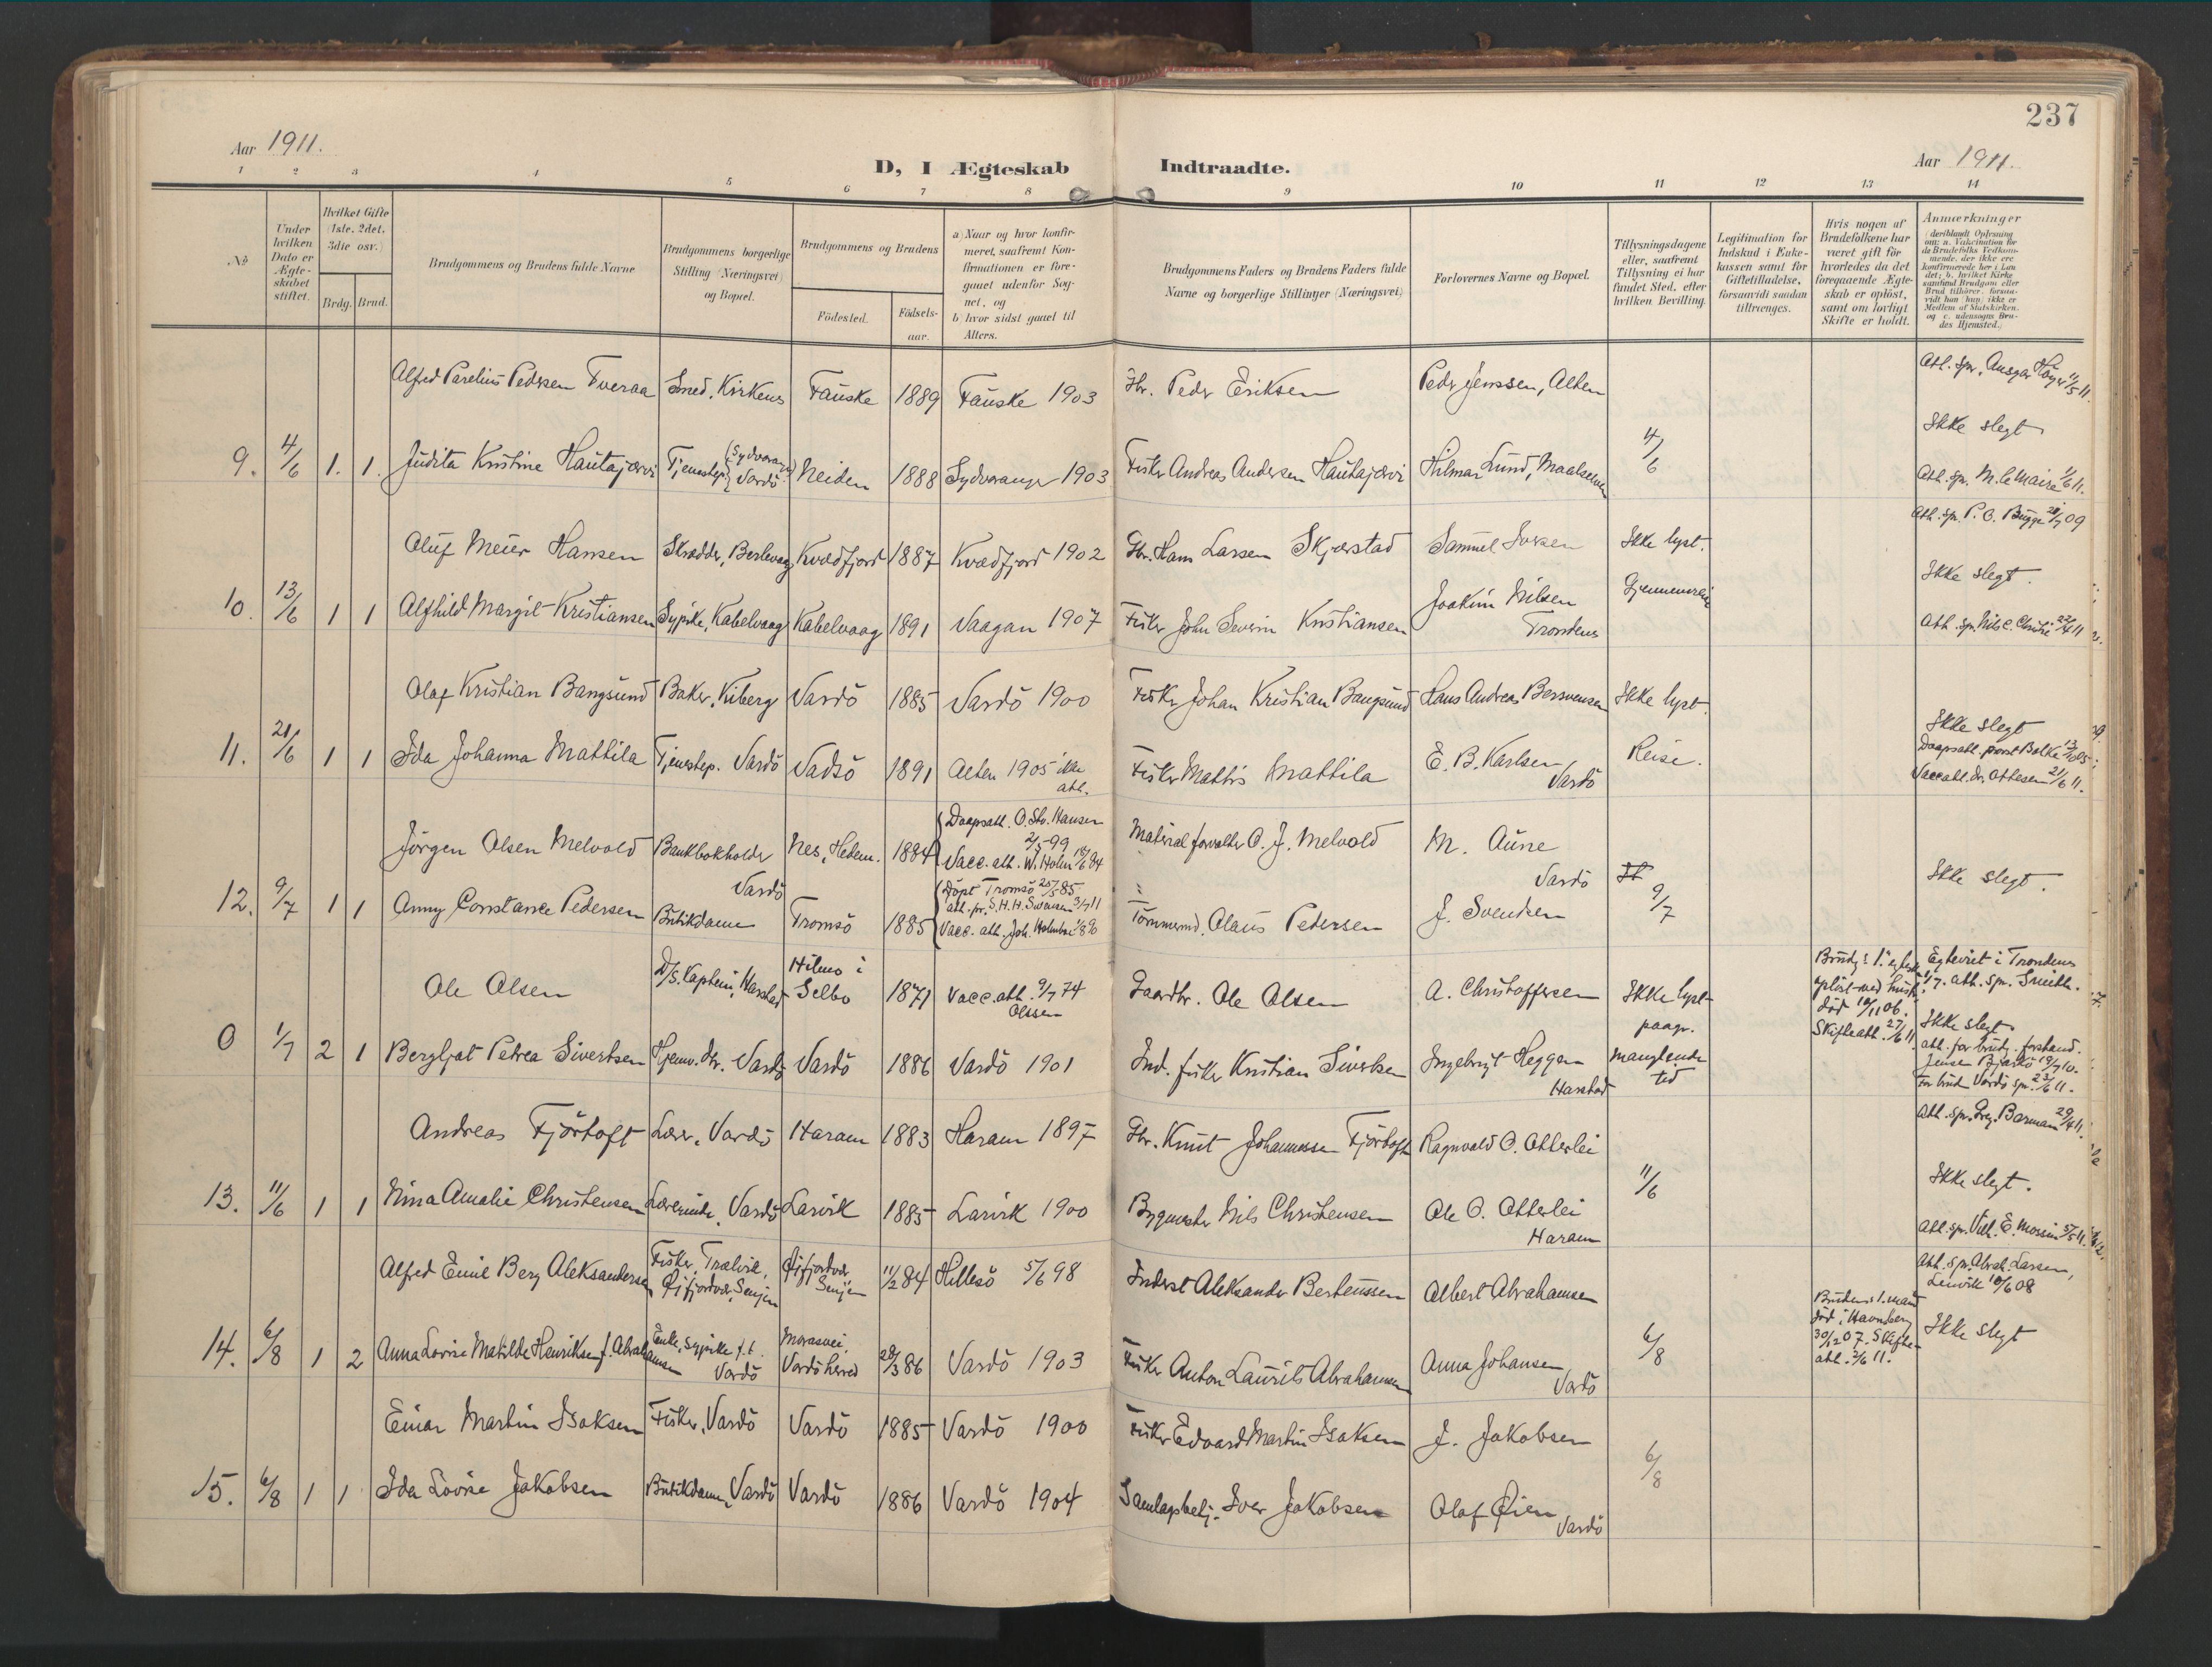 237
Aar 1911.
D, I Ægteskab Indtraadte.
Aar 1911.
1 2 3 4 5 6 7 8 9 10 11 12 13 14
No
Under hvilken Dato er Ægteskabet stiftet.
Hvilket Gifte (1ste, 2det, 3die osv.)
Brdg. Brud.
Brudgommens og Brudens fulde Navne
Brudgommens borgerlige Stilling (Næringsvei) og Bopæl.
Brudgommens og Brudens
Födested.
Födselsaar.
a) Naar og hvor konfirmeret, saafremt Konfirmationen er foregaaet udenfor Sognet, og
b) hvor sidst gaaet til Alters.
Brudgommens Faders og Brudens Faders fulde Navne og borgerlige Stillinger (Næringsvei)
Forlovernes Navne og Bopæl.
Tillysningsdagene eller, saafremt Tillysning ei har fundet Sted, efter hvilken Bevilling.
Legitimation for Indskud i Enkekassen samt for Giftetilladelse, forsaavidt saadan tiltrænges.
Hvis nogen af Brudefolkene har været gift för hvorledes da det foregaaende Ægteskab er oplöst, samt om lovligt Skifte er holdt.
Anmærkninger (deriblandt Oplysning om: a. Vakcination for de Brudefolks Vedkommende, der ikke ere konfirmerede her i Landet; b. hvilket Kirkesamfund Brudgom eller Brud tilhörer, forsaavidt han (hun) ikke er Medlem af Statskirken, og c. udensogns Brudes Hjemsted.)
Alfred Parelius Pedersen Tveraa Smed, Kirkenes Fauske 1889 Fauske 1903 Gbr. Peder Eriksen Peder Jenssen, Alten Att. spr. Ansgar Høyer 11/5 11.
Ikke slegt
9. 4/6 1. 1. Judita Kristine Hautajærvi Tjenestep. (Sydvaranger) Vardö Neiden 1888 Sydvaranger 1903 Fisker Andreas Andersen Hautajærvi Hilmar Lund, Maalselven 4/6 Att. spr. M. le Maire 1/6 11.
Att. spr. P. O. Bugge 09
Oluf Meier Hansen Skrædder, Berlevaag Kvædfjord 1887 Kvædfjord 1902 Gbr. Hans Larsen Skjærstad Samuel Iversen Ikke lyst.
Ikke slegt.
10. 13/6 1 1 Alfhild Margit Kristiansen Sypike, Kabelvaag Kabelvaag 1891 Vaagan 1907 Fisker John Severin Kristiansen Joakim Nilsen Trondenes Gjennemreise Att. spr. Nils C. Christie 22/4 11
Olaf Kristian Bangsund Baker, Kiberg Vardö 1885 Vardö 1900 Fisker Johan Kristian Bangsund Hans Andreas Bersvensen Ikke lyst.
Ikke slegt
11. 21/6 1 1 Ida Johanna Mattila Tjenestep. Vardö Vadsö 1891 Alten 1905 ikke att. Fisker Mattis Mattila E. B. Karlsen Vardö Reise. Daapsatt. provst Balke
Vacc att. dr. Ottesen 21/6 11.
Jörgen Olsen Melvold Bankbokholder Vardö Nes, Hedem. 1884 Daapsatt. O. Str. Hansen 2/5-99
Vacc. att. W. Holm 84 Material forvalter O. J. Melvold M. Aune Vardö
Ikke slegt.
12. 9/7 1 1 Anny Constance Pedersen Butikdame Tromsö 1885 Döpt Tromsö 25/5 85. att. pr. S. H. H. Svensen 3/7 11
Vacc. att. Joh. Holmboe Tömmermd. Olaus Pedersen J. Svendsen 9/7
Ole Olsen D/S. Kaptein, Harstad Hilmo i Selbo 1871 Vacc. att. 9/7 74 Olssen Gaardbr. Ole Olsen A. Christoffersen Ikke lyst Brudg.s 1. egtesk. oplöst ved hustr. död 10/11 06. Skifteatt. 27/6 11. Egteviet i Trondenes 1/7. att. spr. Smith.
0 1/7 2 1 Bergljot Petrea Sivertsen Hjemv. dtr. Vardö Vardö 1886 Vardö 1901 Ind. fisker Kristian Sivertsen Ingebrigt Heggen Harstad paagr. manglende tid Ikke slegt.
att. for brudg. forstand. Jensen Bjarkö 19/7 10.
For brud Vardö spr. 23/6 11.
Andreas Fjörtoft Lærer, Vardö Haram 1883 Haram 1897 Gbr. Knut Johannessen Fjörtoft Ragnvald O. Otterlei Att. spr. Greg. Barman 29/4 11.
Ikke slegt.
13. 11/6 1 1 Nina Amalie Christensen Lærerinde, Vardö Larvik 1885 Larvik 1900 Bygmester Nils Christensen Ole O. Otterlei Haram 11/6 Att. spr. Vilh. E. Mossin 5/5 11.
Alfred Emil Berg Aleksandersen Fisker, Trælvik, Öifjordvær, Senjen Öifjordvær Senjen 11/2 84 Hillesö 5/6 98 Inderst Aleksander Berteussen Albert Abrahamsen Att. spr. Abrah. Larsen, Lenvik 10/6 08
14. 6/8 1 2 Anna Lovise Matilde Henriksen f. Abrahamsen Enke, sypike f.t. Vardö Vardö herred 28/3 86 Vardö 1903 Fisker Anton Laurits Abrahamsen Anna Johansen, Vardö 6/8 Brudens 1. mand död i Havnsberg 30/12 07. Skifteatt. 2/6 11. Ikke slegt
Einar Martin Isaksen Fisker, Vardö Vardö 1885 Vardö 1900 Fisker Edvard Martin Isaksen J. Jakobsen
15. 6/8 1 1 Ida Lovise Jakobsen Butikdame, Vardö Vardö 1886 Vardö 1904 Samlagsbetj. Iver Jakobsen Olaf Öien, Vardö 6/8